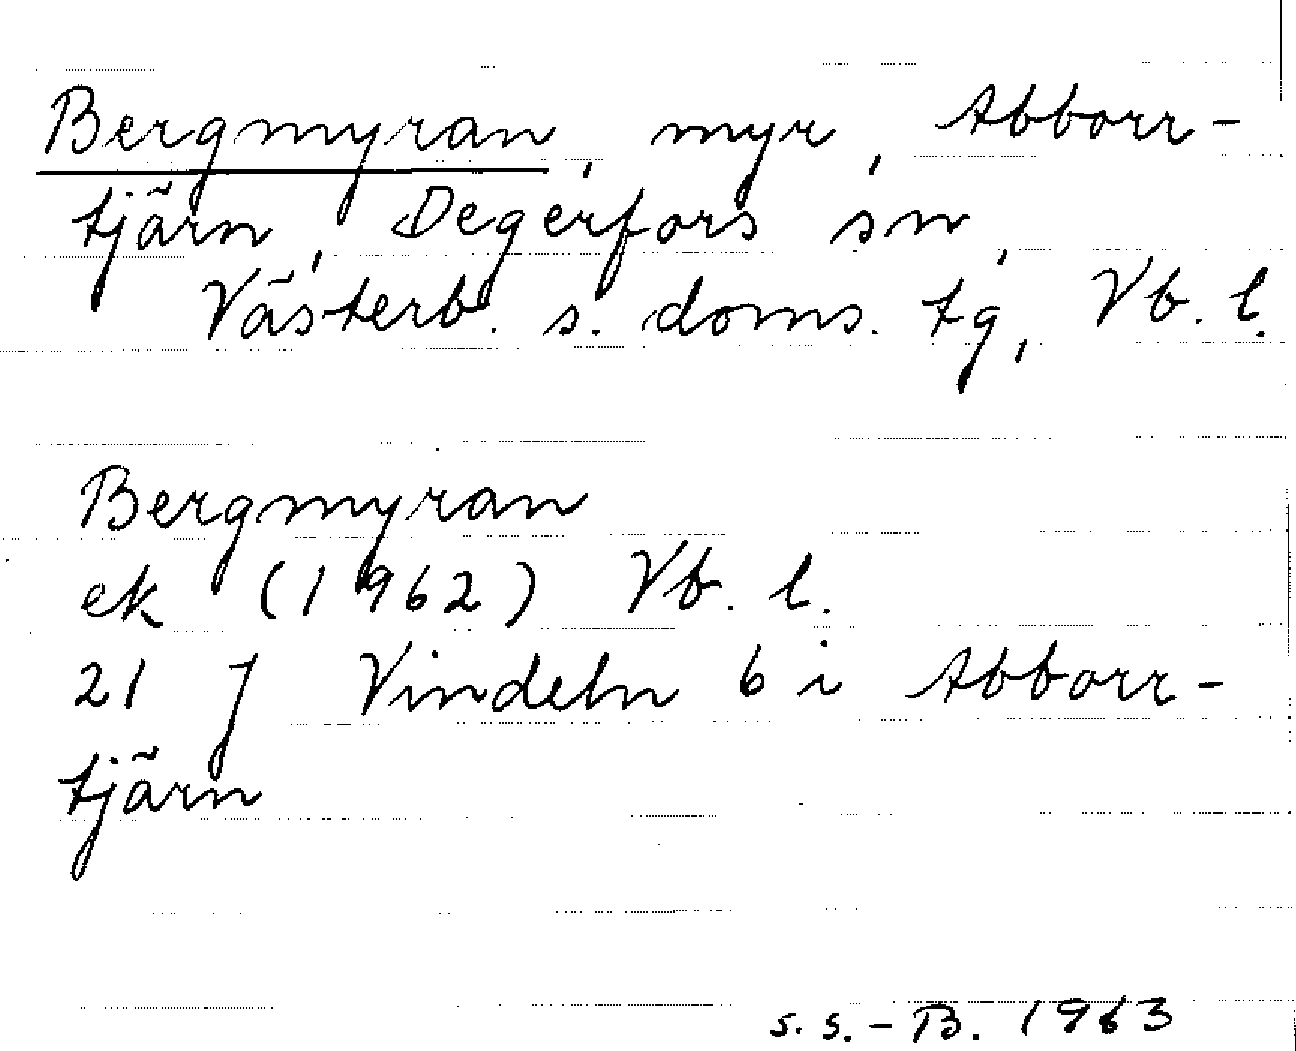 Bergmyran, myr, Abborr-
tjärn, Degerfors sn,
Västerb. s. doms. tg, Vb. l.
Bergmyran
ek (1962) Vb. l.
21 J Vindeln 6 i Abborr-
tjärn
S. S. - B. 1963